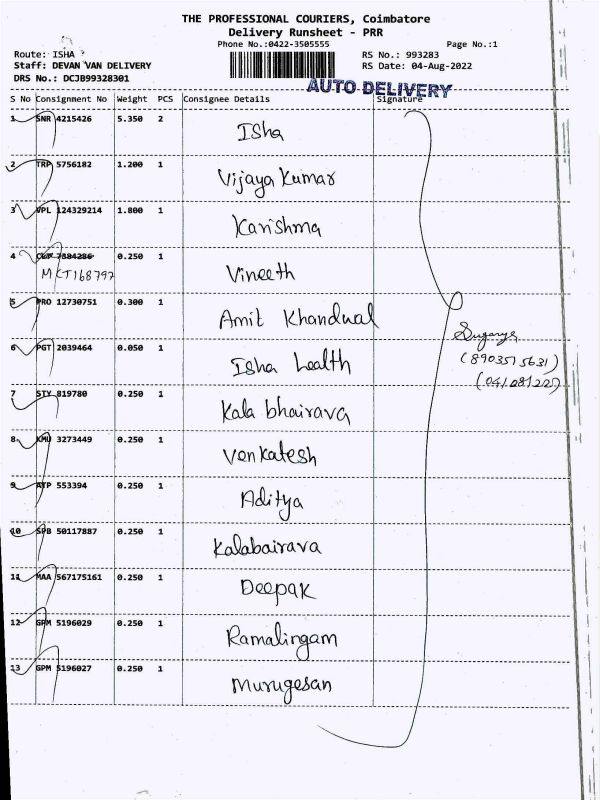 THE PROFESSIONAL COURIERS, Coimbatore
Delivery Runsheet - PRR
Phone No.:0422-3505555 Page No.:1
Route: ISHA RS No.: 993283
Staff: DEVAN VAN DELIVERY RS Date: 04-Aug-2022
DRS No.: DCJB99328301
AUTO DELIVERY
S No Consignment No Weight PCS Consignee Details Signature
1 SNR 4215426 5.350 2 Isha
2 TRP 5756182 1.200 1 Vijaya Kumar
3 VPL 124329214 1.800 1 Karishma
4 7884286 0.250 1 Vineeth
MKT168797
5 PRO 12730751 0.300 1 Amit Khandual
Suganya
6 PGT 2039464 0.050 1 Isha Health
(8903515631)
(04/08/222)
7 STY 819780 0.250 1 Kala bhairava
8 KMU 3273449 0.250 1 Venkatesh
9 ATP 553394 0.250 1 Aditya
10 SPB 50117887 0.250 1 Kalabairava
11 MAA 567175161 0.250 1 Deepak
12 GPM 5196029 0.250 1 Ramalingam
13 GPM 5196027 0.250 1 Murugesan